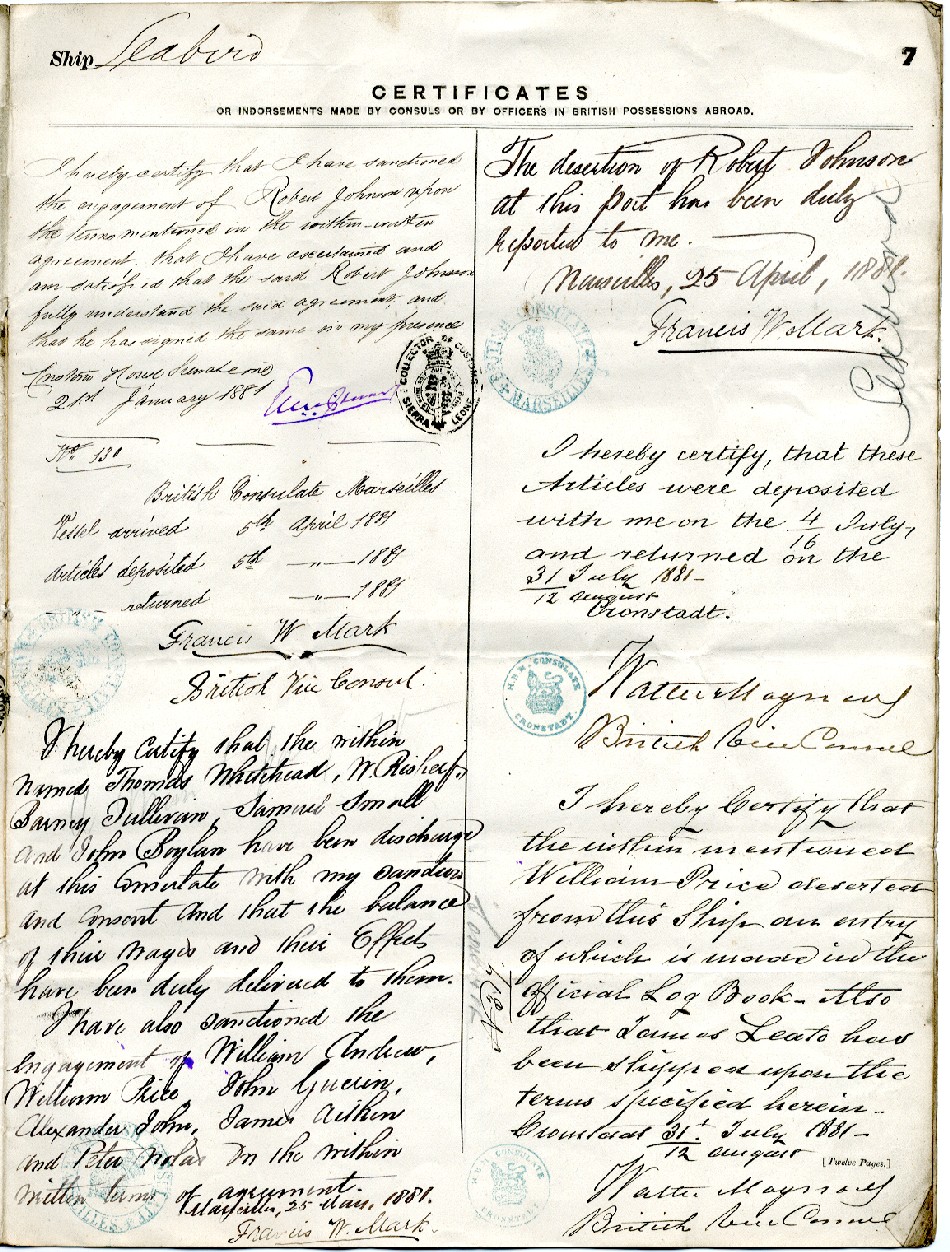 Ship Seabird
7
CERTIFICATES
OR INDORSEMENTS MADE BY CONSULS OR BY OFFICERS IN BRITISH POSSESSIONS ABROAD.
I hereby certify that I have sanctioned
the engagement of Robert Johnson upon
the terms mentioned in the within-written
agreement, that I have ascertained and
am satisfied that the said Robert Johnson
fully understand the said agreement, and
that he has signed the same in my presence
Custom House Sierra Leone
21st January 1881
COLLECTOR OF CUSTOMS
SIERRA LEONE
No 130
British Consulate Marseilles
Vessel arrived 5th April 1881
Articles deposited 5th -"- 1881
returned -"- 1881
Francis W Mark
British Vice Consul.
I hereby certify that the within
named Thomas Whitehead, W.
Barney Sullivan, Samuel Small
and John Boylan have been discharge
at this Consulate with my sanction
and consent and that the balance
of their wages and their Effects
have been duly delivered to them.
I have also sanctioned the
engagement of William Andrew,
William Price, John Guerin,
Alexander John, James Aitkin
and Peter Nolan on the within
written terms of agreement.
Marseilles, 25 1881.
Francis W. Mark.
The desertion of Robert Johnson
at this Port has been duly
reported to me.
Marseilles, 25 April, 1881.
Francis W. Mark.
Seabird
BRITISH CONSULATE
MARSEILLES
I hereby certify, that these
Articles were deposited
with me on the 4/16 July,
and returned on the
31 July/12 August 1881-
Cronstadt.
H.B.M. CONSULATE
CRONSTADT.
Walter Maynard
British Vice Consul
I hereby Certify that
the within mentioned
William Price deserted
from this Ship an entry
of which is made in the
official Log Book- Also
that James Leato has
been shipped upon the
terms specified herein-
Cronstadt 31st July/12 August 1881-
[Twelve Pages.]
Walter Maynard
British Vice Consul